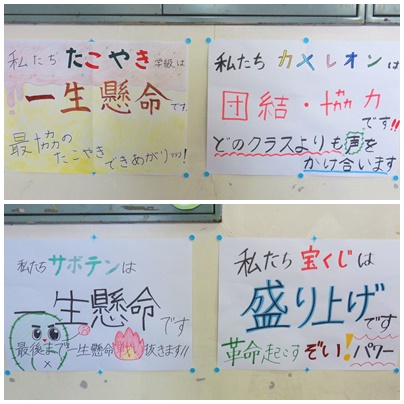 私たち たこやき 学級は
一生懸命です
最協の
たこやきできあがりィィ!
私たち カメレオンは
団結・協力
です!!
どのクラスよりも声を
かけ合います
私たち サボテンは
一生懸命です
最後まで一生懸命戦い抜きます!!
私たち 宝くじは
盛り上げです
革命起こすぞい!パワー